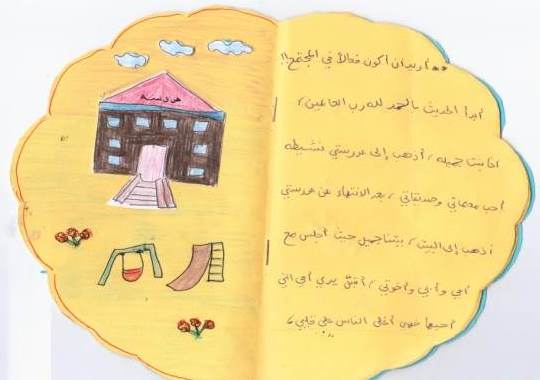 مدرسة
** أريد أن أكون فعالاً في المجتمع!!
أبدأ الحديث بالحمد لله رب العالمين،
أنا بنت جميله، أذهب إلى مدرستي نشيطه
أحب معلماتي وصديقاتي، بعد الانتهاء من مدرستي
أذهب إلى البيت، بيتنا جميل حيث أجلس مع
أمي وأبي وأخوتي، أقبّل يدي أمي التي
أحبها فهي أغلى الناس على قلبي،